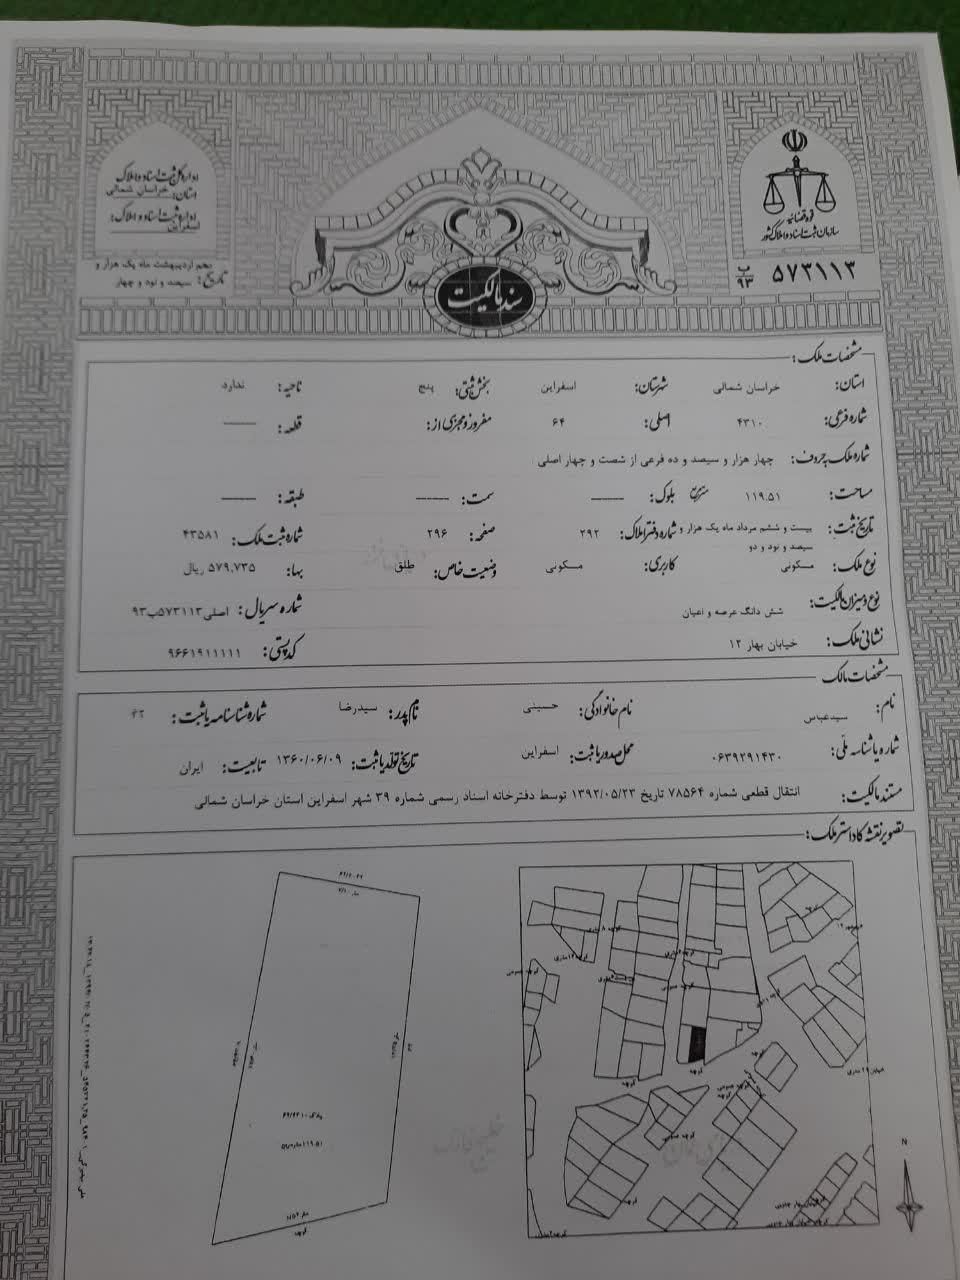 قوه قضائیه
سازمان ثبت اسناد و املاک کشور
۵۷۳۱۱۳ ب ۹۳
اداره کل ثبت اسناد و املاک
استان: خراسان شمالی
اداره ثبت اسناد و املاک:
اسفراین
تاریخ: پنجم اردیبهشت ماه یک هزار و
سیصد و نود و چهار
سند مالکیت
مشخصات ملک:
استان: خراسان شمالی شهرستان: اسفراین بخش ثبتی: پنج ناحیه: ندارد
شماره فرعی: ۴۳۱۰ اصلی: ۶۴ مفروز و مجزی از: قطعه: ———
شماره ملک به حروف: چهار هزار و سیصد و ده فرعی از شصت و چهار اصلی
مساحت: ۱۱۹.۵۱ متر مربع بلوک: ——— سمت: ——— طبقه: ———
تاریخ ثبت: بیست و ششم مرداد ماه یک هزار و سیصد و نود و دو شماره دفتر املاک: ۲۹۲ صفحه: ۲۹۶ شماره ثبت ملک: ۴۳۵۸۱
نوع ملک: مسکونی کاربری: مسکونی وضعیت خاص: طلق بها: ۵۷۹,۷۳۵ ریال
نوع و میزان مالکیت: شش دانگ عرصه و اعیان شماره سریال: اصلی ۵۷۳۱۱۳ب۹۳
نشانی ملک: خیابان بهار ۱۲ کد پستی: ۹۶۶۱۹۱۱۱۱۱
مشخصات مالک
نام: سیدعباس نام خانوادگی: حسینی نام پدر: سیدرضا شماره شناسنامه یا ثبت: ۴۲
شماره یا شناسه ملی: ۰۶۳۹۲۹۱۴۳۰ محل صدور یا ثبت: اسفراین تاریخ تولد یا ثبت: ۱۳۶۰/۰۶/۰۹ تابعیت: ایران
مستند مالکیت: انتقال قطعی شماره ۷۸۵۶۴ تاریخ ۱۳۹۲/۰۵/۲۳ توسط دفترخانه اسناد رسمی شماره ۳۹ شهر اسفراین استان خراسان شمالی
تصویر نقشه کاداستر ملک:
پلاک ۶۴/۴۳۱۰
کوچه
N